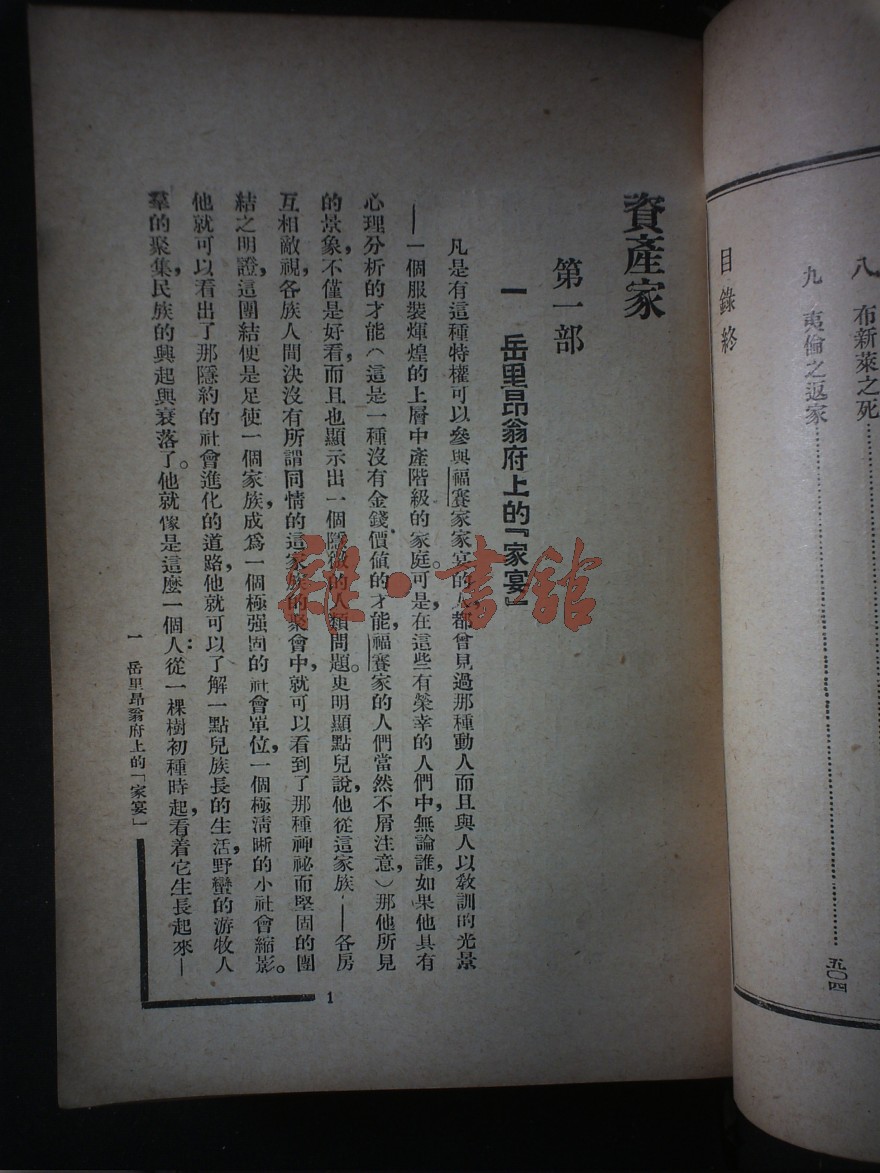 八　布新萊之死
九　夷倫之返家　五〇四
目錄終
資產家
第一部
一　岳里昂翁府上的「家宴」
凡是有這種特權可以參與福賽家家宴的人，都曾見過那種動人而且與人以教訓的光景
——一個服裝煇煌的上層中產階級的家庭。可是，在這些有榮幸的人們中，無論誰，如果他具有
心理分析的才能（這是一種沒有金錢價值的才能，福賽家的人們當然不屑注意，）那他所見
的景象，不僅是好看，而且也顯示出一個隱微的人類問題。更明顯點兒說，他從這家族——各房
互相敵視，各族人間決沒有所謂同情的這家族的聚會中，就可以看到了那種神祕而堅固的團
結之明證，這團結便是足使一個家族，成爲一個極强固的社會單位，一個極清晰的小社會縮影。
他就可以看出了那隱約的社會進化的道路，他就可以了解一點兒族長的生活，野蠻的游牧人
羣的聚集，民族的興起與衰落了。他就像是這麼一個人：從一棵樹初種時起，看着它生長起來—
一　岳里昂翁府上的「家宴」
1
雜·書館